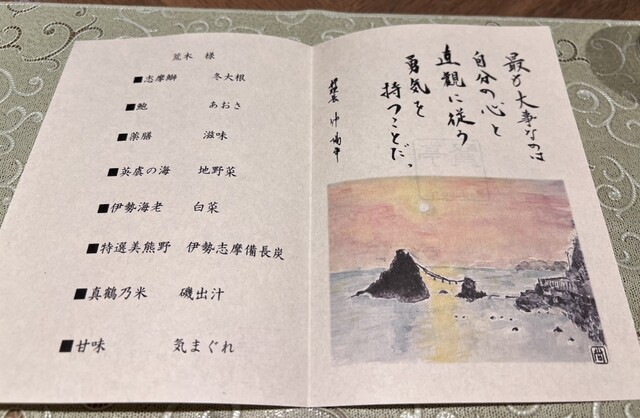 荒木　様
■志摩鰤　冬大根
■鮑　あおさ
■薬膳　滋味
■英虞の海　地野菜
■伊勢海老　白菜
■特選美熊野　伊勢志摩備長炭
■真鶴乃米　磯出汁
■甘味　気まぐれ
最も大事なのは
自分の心と
直観に従う
勇気を
持つことだ。